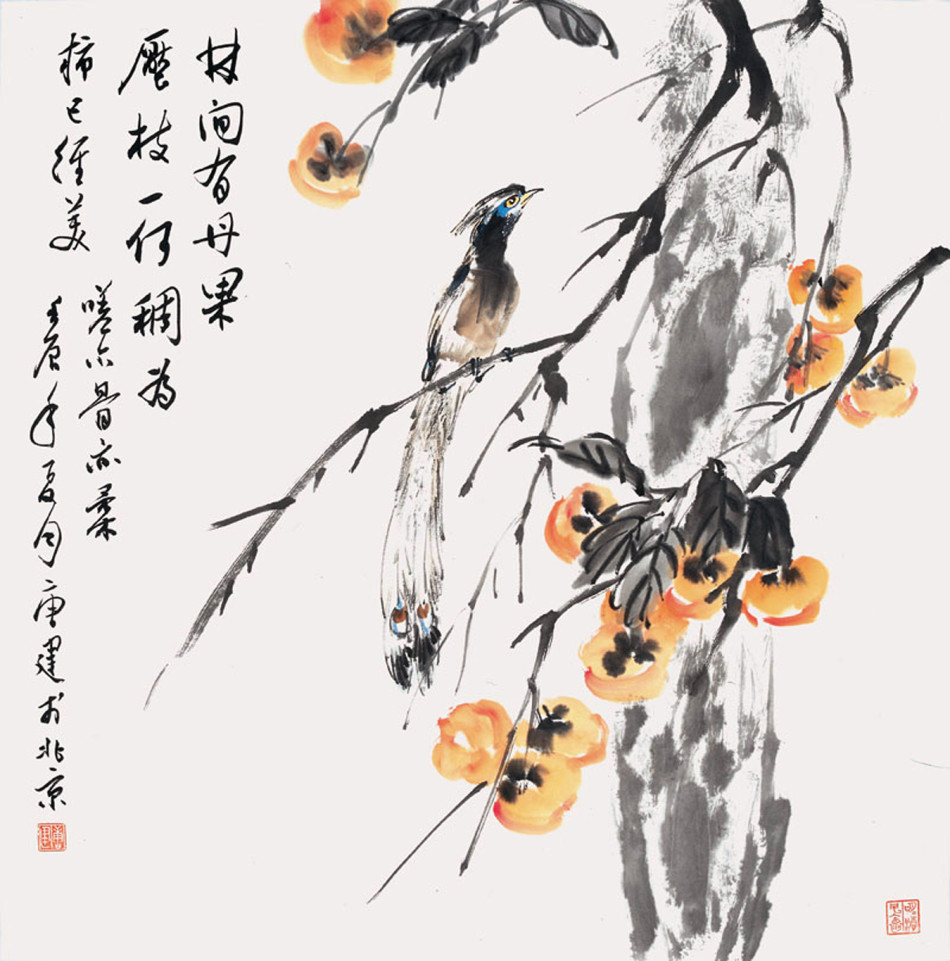 林间有丹果
壓枝一何稠为
柿已经美
嗟尔骨亦柔
壬辰年夏月唐建於北京